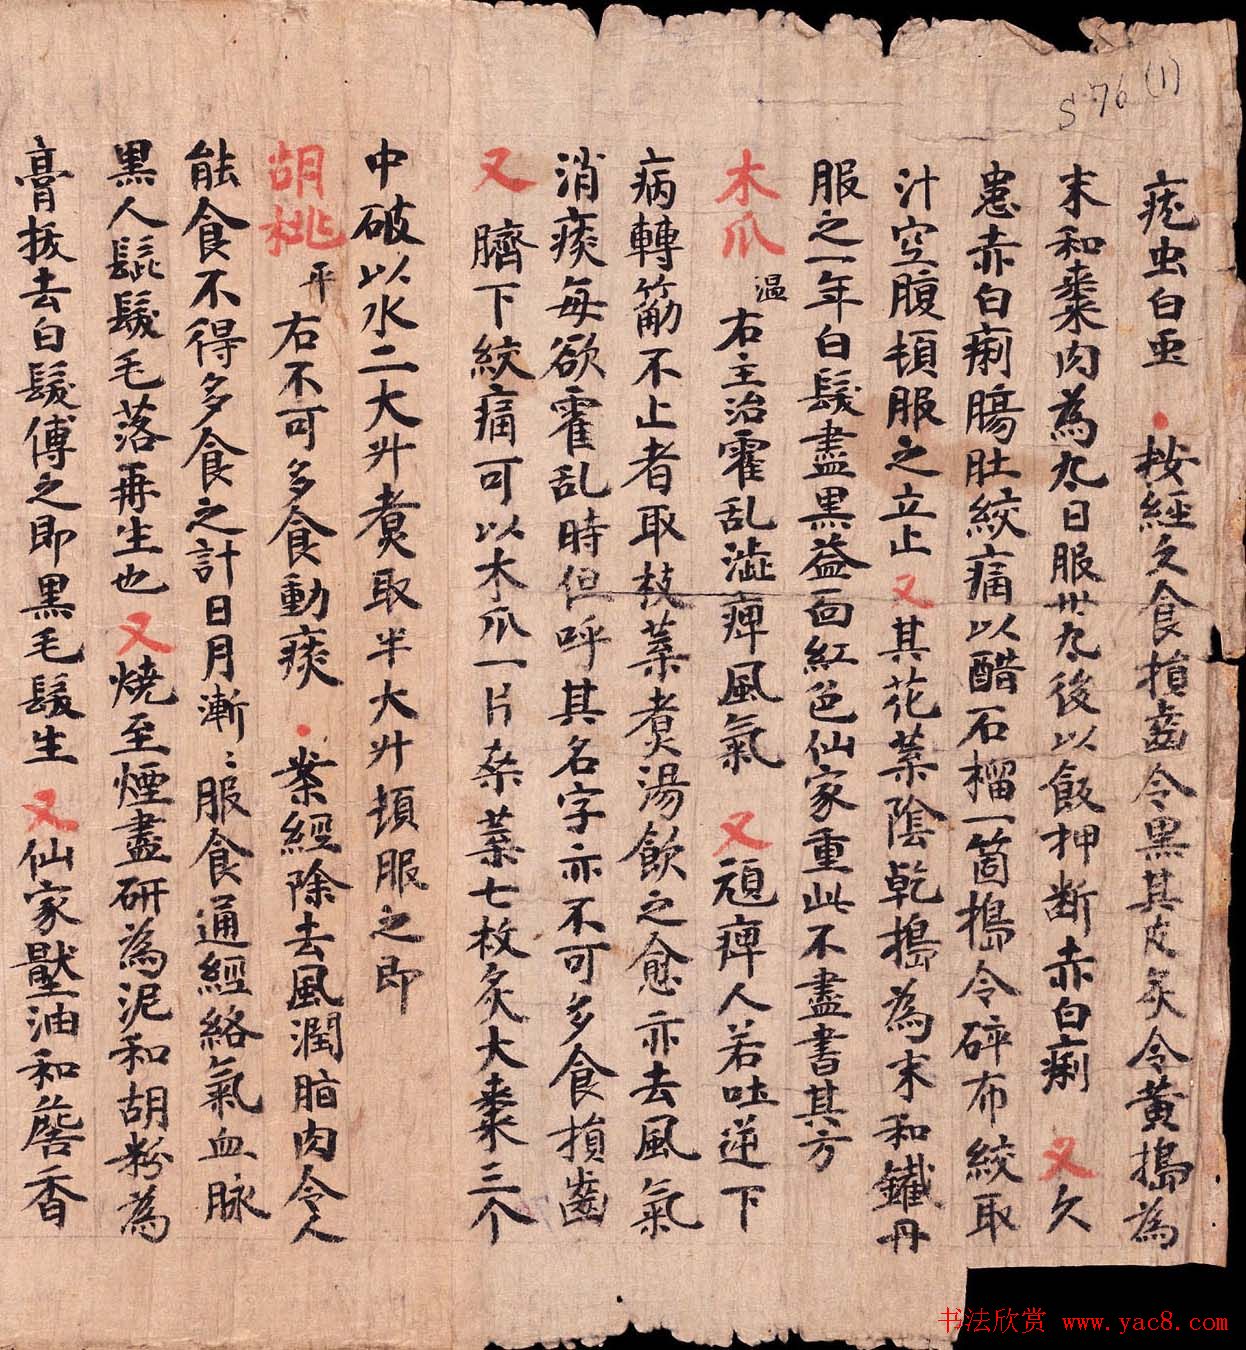 S 76 (1)
疣虫白虫 按經久食損齒令黑其皮炙令黄搗為
末和棗肉為丸日服卅丸後以飯押断赤白痢 又久
患赤白痢腸肚絞痛以醋石榴一箇搗令碎布絞取
汁空腹頓服之立止 又其花葉陰乾搗為末和鐵丹
服之一年白髮盡黑益面紅色仙家重此不盡書其方
木瓜 温 右主治霍乱澁痺風氣 又頑痺人若吐逆下
病轉筋不止者取枝葉煮湯飲之愈亦去風氣
消痰每欲霍乱時但呼其名字亦不可多食損齒
又 臍下絞痛可以木瓜一片桒葉七枚炙大棗三个
中破以水二大升煮取半大升頓服之即
胡桃 平 右不可多食動痰 案經除去風潤脂肉令人
能食不得多食之計日月漸〻服食通經絡氣血脉
黒人髭髮毛落再生也 又燒至煙盡研為泥和胡粉為
膏拔去白髮傅之即黒毛髮生 又仙家壓油和詹香
书法欣赏 www.yac8.com